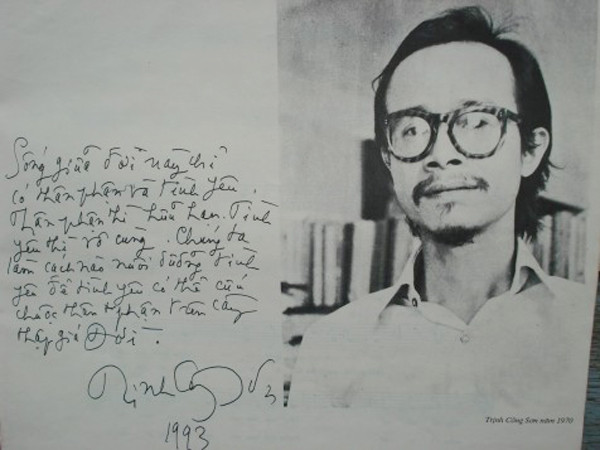 Sống giữa đời này chỉ
có thân phận và tình yêu.
Thân phận thì hữu hạn. Tình
yêu thì vô cùng. Chúng ta
làm cách nào nuôi dưỡng tình
yêu để tình yêu có thể cứu
chuộc thân phận trên cây
thập giá Đời.
Trịnh Công Sơn
1993
Trịnh Công Sơn năm 1970